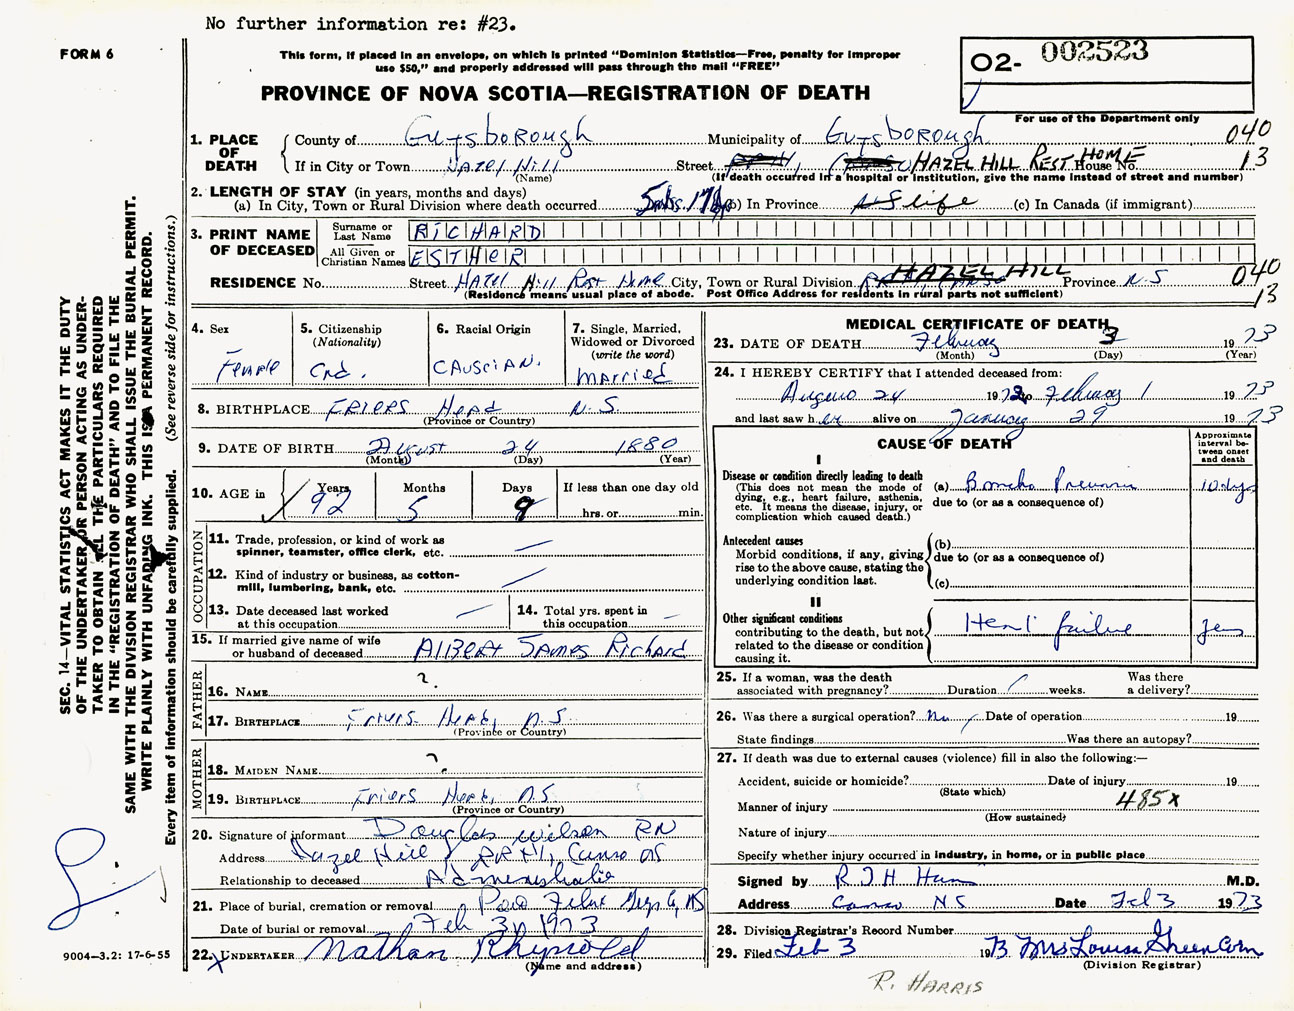 No further information re: #23.
FORM 6
This form, if placed in an envelope, on which is printed "Dominion Statistics—Free, penalty for improper
use $50," and properly addressed will pass through the mail "FREE"
O2- 002523
PROVINCE OF NOVA SCOTIA—REGISTRATION OF DEATH
For use of the Department only
1. PLACE OF DEATH
County of Guysborough Municipality of Guysborough 040
If in City or Town Hazel Hill Street HAZEL HILL REST HOME House No. 13
(Name) (If death occurred in a hospital or institution, give the name instead of street and number)
2. LENGTH OF STAY (in years, months and days)
(a) In City, Town or Rural Division where death occurred (b) In Province life (c) In Canada (if immigrant)
3. PRINT NAME OF DECEASED
Surname or Last Name RICHARD
All Given or Christian Names ESTHER
RESIDENCE No. Street Hazel Hill Rest Home City, Town or Rural Division HAZEL HILL Province N.S 040
(Residence means usual place of abode. Post Office Address for residents in rural parts not sufficient) 13
4. Sex
Female
5. Citizenship
(Nationality)
Cnd.
6. Racial Origin
CAUSCIAN.
7. Single, Married,
Widowed or Divorced
(write the word)
MARRiEd
8. BIRTHPLACE FRIERS Head N.S.
(Province or Country)
9. DATE OF BIRTH August 24 1880
(Month) (Day) (Year)
10. AGE in
Years Months Days If less than one day old
92 5 9 hrs. or min.
OCCUPATION
11. Trade, profession, or kind of work as
spinner, teamster, office clerk, etc. —
12. Kind of industry or business, as cotton-
mill, lumbering, bank, etc. —
13. Date deceased last worked
at this occupation —
14. Total yrs. spent in
this occupation —
15. If married give name of wife
or husband of deceased AlBert James Richard
FATHER
16. NAME ?
17. BIRTHPLACE Friers Head, N.S
(Province or Country)
MOTHER
18. MAIDEN NAME ?
19. BIRTHPLACE Friers Head, N.S.
(Province or Country)
20. Signature of informant Douglas Wilson RN
Address Hazel Hill RR #1, Canso NS
Relationship to deceased Administrator
21. Place of burial, cremation or removal Felix Guys Co, NS
Date of burial or removal Feb 3, 1973
22. UNDERTAKER Nathan Rhynold
(Name and address)
MEDICAL CERTIFICATE OF DEATH
23. DATE OF DEATH February 3 1973
(Month) (Day) (Year)
24. I HEREBY CERTIFY that I attended deceased from:
August 24 1972 to February 1 1973
and last saw her alive on January 29 1973
CAUSE OF DEATH
Approximate
interval be-
tween onset
and death
I
Disease or condition directly leading to death
(This does not mean the mode of
dying, e.g., heart failure, asthenia,
etc. It means the disease, injury, or
complication which caused death.)
(a) Broncho Pneumonia 10 days
due to (or as a consequence of)
Antecedent causes
Morbid conditions, if any, giving
rise to the above cause, stating the
underlying condition last.
(b)
due to (or as a consequence of)
(c)
II
Other significant conditions
contributing to the death, but not
related to the disease or condition
causing it.
Heart failure
25. If a woman, was the death
associated with pregnancy? Duration weeks. Was there
a delivery?
26. Was there a surgical operation? No Date of operation 19
State findings Was there an autopsy?
27. If death was due to external causes (violence) fill in also the following:—
Accident, suicide or homicide? Date of injury 19
(State which)
Manner of injury 485x
(How sustained)
Nature of injury
Specify whether injury occurred in industry, in home, or in public place
Signed by M.D.
Address Canso NS Date Feb 3 1973
28. Division Registrar's Record Number
29. Filed Feb 3 1973 Mrs Louise Greencorn
(Division Registrar)
R. HARRIS
SEC. 14—VITAL STATISTICS ACT MAKES IT THE DUTY
OF THE UNDERTAKER OR PERSON ACTING AS UNDER-
TAKER TO OBTAIN ALL THE PARTICULARS REQUIRED
IN THE "REGISTRATION OF DEATH" AND TO FILE THE
SAME WITH THE DIVISION REGISTRAR WHO SHALL ISSUE THE BURIAL PERMIT.
WRITE PLAINLY WITH UNFADING INK. THIS IS A PERMANENT RECORD.
Every item of information should be carefully supplied. (See reverse side for instructions.)
9004—3.2: 17-6-55